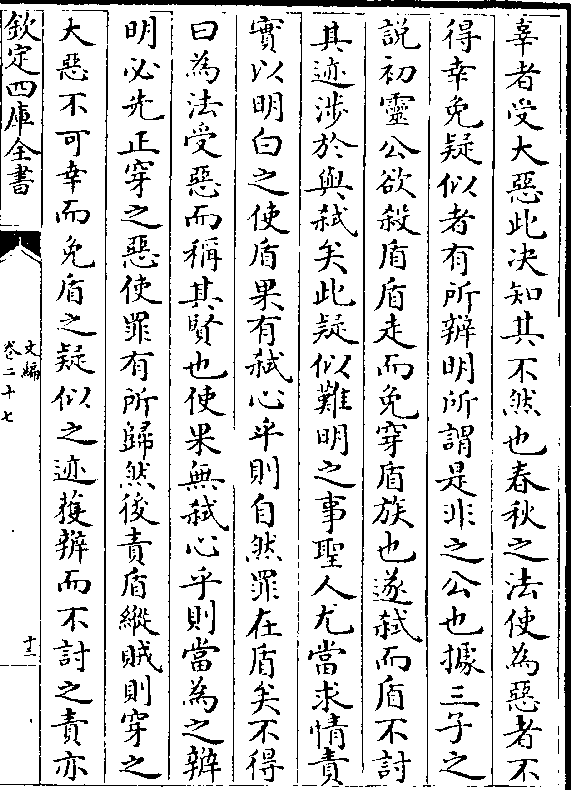 辜者受大惡此决知其不然也春秋之法使為惡者不
得幸免疑似者有所辨明所謂是非之公也據三子之
說初靈公欲殺盾盾走而免穿盾族也遂弑而盾不討
其迹涉於與弑矣此疑似難明之事聖人尤當求情責
實以明白之使盾果有弑心乎則自然罪在盾矣不得
曰為法受惡而稱其賢也使果無弑心乎則當為之辨
明必先正穿之惡使罪有所歸然後責盾縱賊則穿之
大惡不可幸而免盾之疑似之迹獲辨而不討之責亦
欽定四庫全書
文編
卷二十七
十二